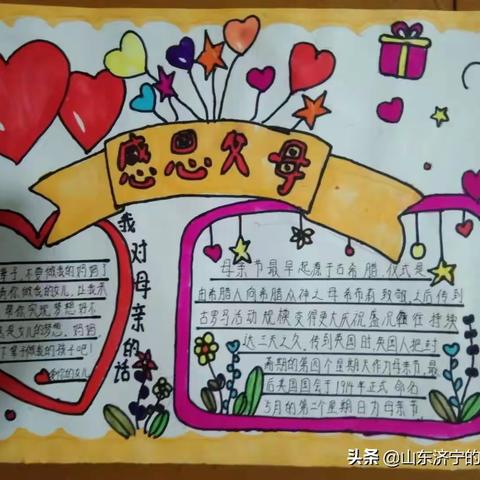 感恩父母
我对母亲的话
辈子,不要做我的妈妈了
你做我的女儿,让我来
帮你完成梦想好不
是女儿的梦想,妈妈
下辈子做我的孩子吧!
爱你的女儿
母亲节最早起源于古希腊,仪式是
由希腊人向希腊众神之母希布莉致敬,之后传到
古罗马活动规模变得更大庆祝盛况往往持续
达三天之久,传到英国时,英国人把封
斋期的第四个星期天作为母亲节,最
后美国国会于1914年正式命名
5月的第二个星期日为母亲节
头条 @山东济宁的